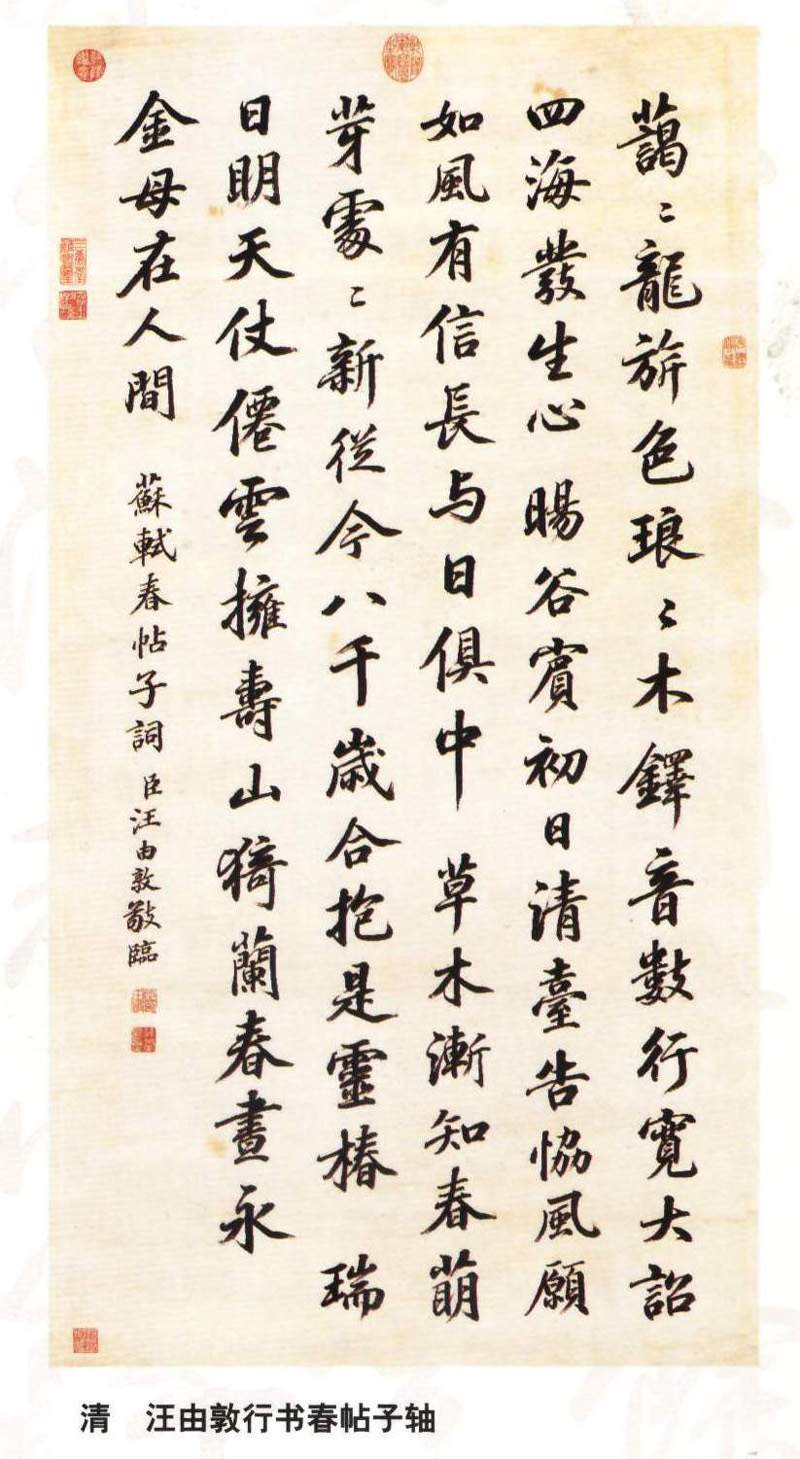 藹〻龍旂色琅〻木鐸音數行寬大詔
四海發生心 暘谷賓初日清臺告協風願
如風有信長与日俱中 草木漸知春萌
芽處〻新從今八千歲合抱是靈椿 瑞
日明天仗僊雲擁壽山猗蘭春晝永
金母在人間 蘇軾春帖子詞 臣汪由敦敬臨
清 汪由敦行书春帖子轴